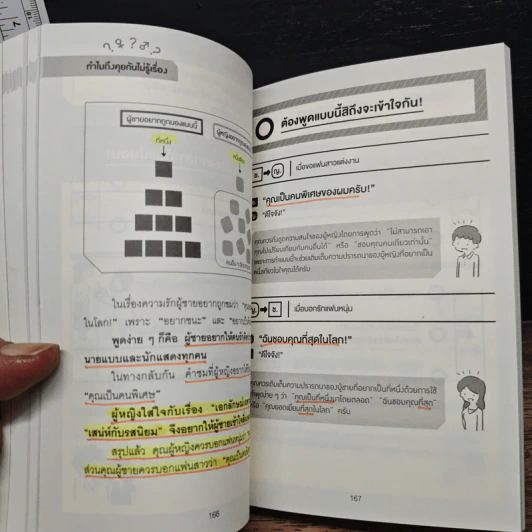 ทำไมถึงคุยกันไม่รู้เรื่อง
ผู้ชายอยากถูกมองแบบนี้
ที่หนึ่ง
ในเรื่องความรักผู้ชายอยากถูกชมว่า
ในโลก!" เพราะ "อยากชนะ" และ
พูดง่าย ๆ ก็คือ ผู้ชายอยากให้
นายแบบและนักแสดงทุกคน
ในทางกลับกัน คำชมที่ผู้หญิงอยาก
"คุณเป็นคนพิเศษ"
ผู้หญิงใส่ใจกับเรื่อง
"เสน่ห์กับรสนิยม" จึงอยากให้ผู้ชาย
สรุปแล้ว คุณผู้หญิงควรบอกแฟนหนุ่ม
ส่วนคุณผู้ชายควรบอกแฟนสาวว่า
166
ต้องพูดแบบนี้สิถึงจะเข้าใจกัน!
ช. ญ. เมื่อขอแฟนสาวแต่งงาน
"คุณเป็นคนพิเศษของผมครับ!"
"ดีใจจัง!"
คุณควรดึงดูดความสนใจของผู้หญิงโดยการพูดว่า "ไม่สามารถเอา
คุณไปเปรียบเทียบกับคนอื่นได้" หรือ "ชอบคุณคนเดียวเท่านั้น"
เพราะการทำแบบนี้จะช่วยเติมเต็มความปรารถนาของผู้หญิงที่อยากเป็น
หนึ่งเดียวในใจคุณได้ครับ
ช. เมื่อบอกรักแฟนหนุ่ม
"ฉันชอบคุณที่สุดในโลก!"
"ดีใจจัง!"
คุณควรเติมเต็มความปรารถนาของผู้ชายที่อยากเป็นที่หนึ่งด้วยการใช้
คำพูดง่าย ๆ ว่า "คุณเป็นที่หนึ่งมาโดยตลอด" "ฉันชอบคุณที่สุด"
หรือ "คุณยอดเยี่ยมที่สุดในโลก" ครับ
167